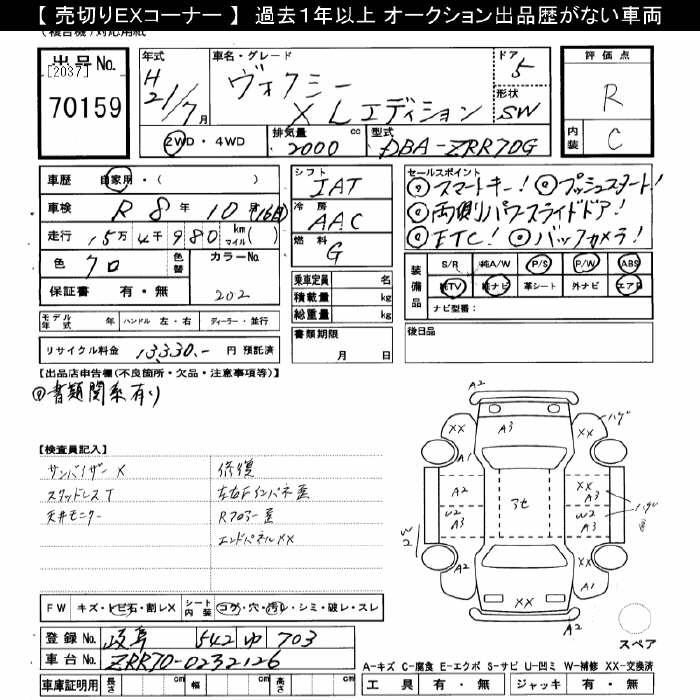 【 売切りEXコーナー 】 過去１年以上 オークション出品歴がない車両
出品No.
[2037]
70159
年式
H 21/7月
車名・グレード
ヴォクシー
X Lエディション
ドア
5
形状
SW
2WD・4WD
排気量 cc
2000
型式
DBA-ZRR70G
評価点
R
内装
C
車歴 自家用・( )
車検 R 8年 10月(16日)
走行 15万 4千 980 km マイル( )
色 クロ
色替
カラーNo.
202
保証書 有・無
シフト
IAT
冷房
AAC
燃料
G
乗車定員 名
積載量 kg
総重量 kg
セールスポイント
スマートキー! プッシュスタート!
両側パワースライドドア!
ETC! バックカメラ!
装備品
S/R 純A/W P/S P/W ABS
純TV 純ナビ 革シート 外ナビ エアB
ナビ型番:
モデル年式 年 ハンドル 左・右 ディーラー・並行
リサイクル料金 13,330.- 円 預託済
書類期限
月 日
後日品
【出品店申告欄(不良箇所・欠品・注意事項等)】
書類関係有り
【検査員記入】
サンバイザー X
スタッドレスT
天井モニター
修復
左右Fインパネ歪
Rフロアー歪
エンドパネルXX
A2
XX
A3
XX
ハゲ
A1
A2
アセ
XX
A3
U2
A3
W2
A3
W2
A2
XX
XX
A1
スペア
FW キズ・トビ石・割レX
シート内装 コゲ・穴・汚レ・シミ・破レ・スレ
登録No. 岐阜 542 ゆ 703
車台No. ZRR70-0232126
車庫証明用 長さ cm 幅 cm 高さ cm
A-キズ C-腐食 E-エクボ S-サビ U-凹ミ W-補修 XX-交換済
工具 有・無 ジャッキ 有・無